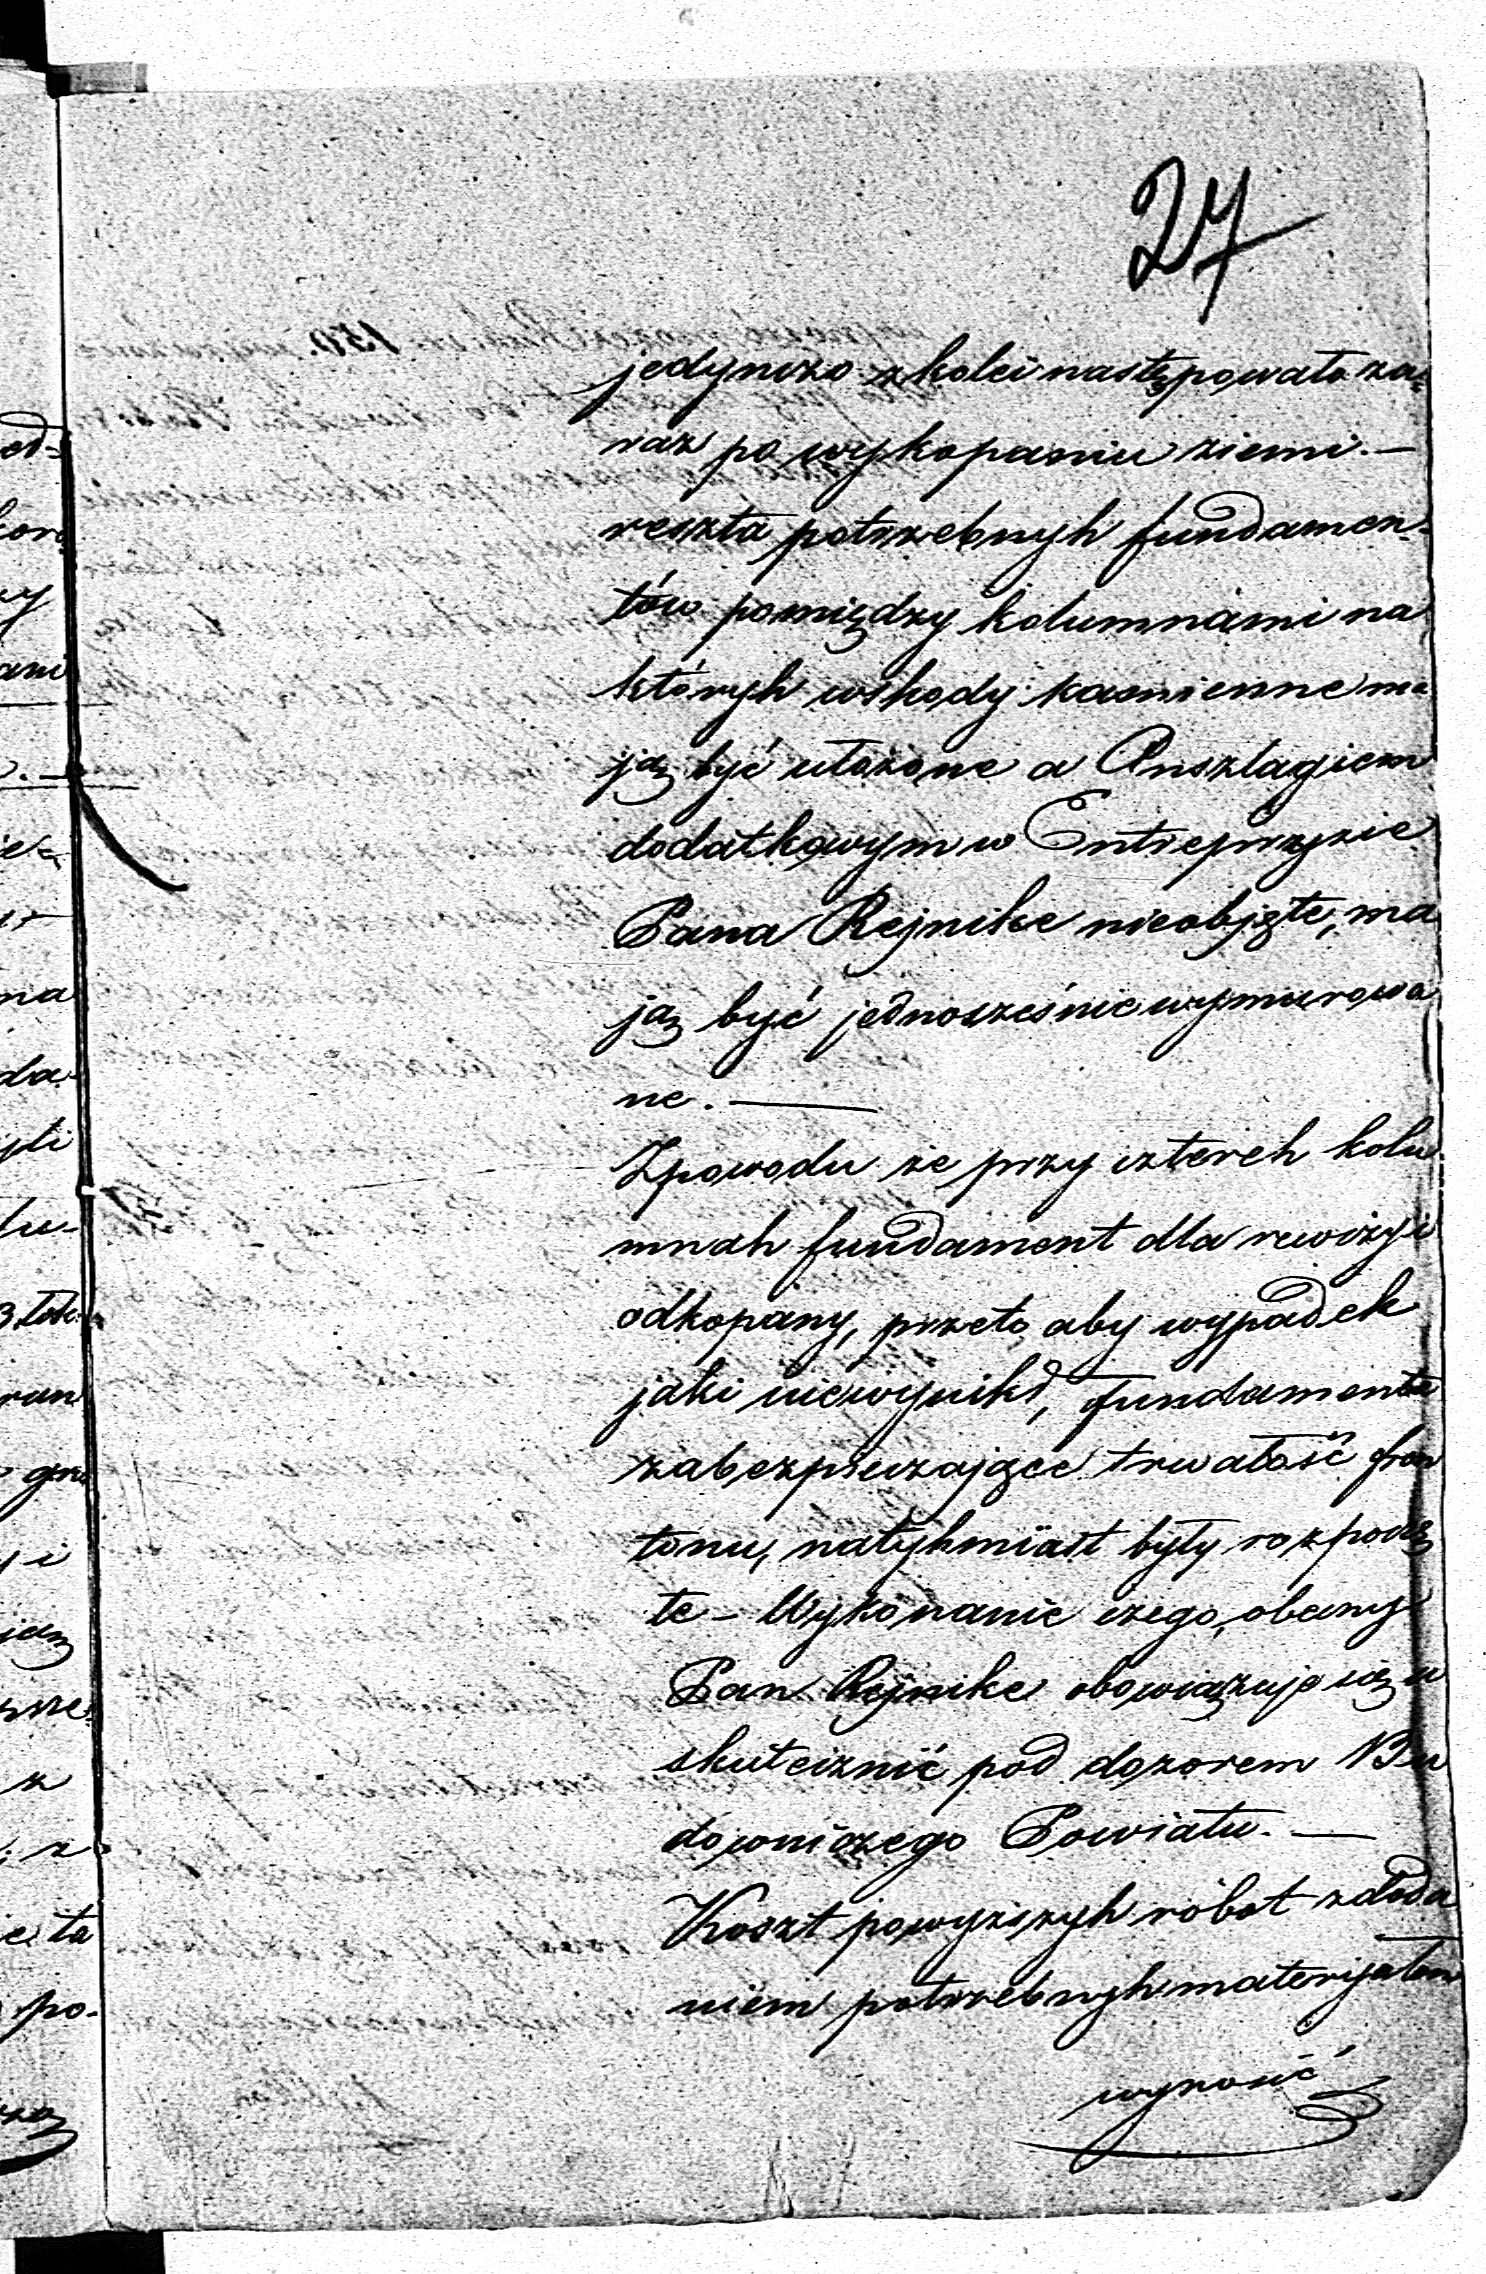 27
jedynczo z kolei następowało za=
raz po wykopaniu ziemi. —
reszta potrzebnych fundamen=
tów pomiędzy kolumnami na
których wschody kamienne ma
ją być ułożone a Anszlagiem
dodatkowym w Entrepryzie
Pana Rejnike nieobjęte, ma
ją być jednocześnie wymurowa
ne. —
Zpowodu że przy czterech kolu
mnach fundament dla rewizyi
odkopany, przeto aby wypadek
jaki niewynikł, fundamenta
zabezpieczające trwałość fron
tonu, natychmiast były rozpoczę
te - Wykonanie czego, obecny
Pan Rejnike obowiązuje się u
skutecznić pod dozorem Bu
downiczego Powiatu. —
Koszt powyższych robot z doda
niem potrzebnych materyałow
wynosić